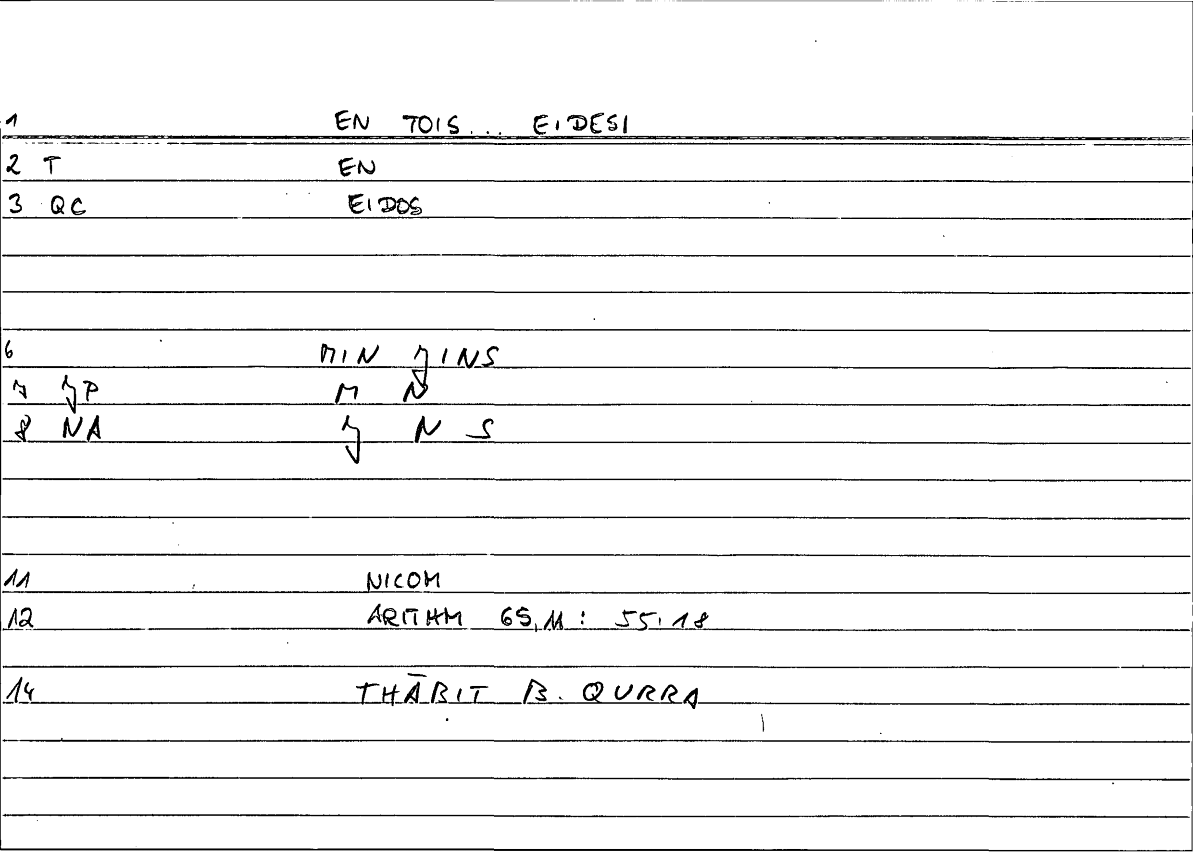 1 EN TOIS... EIDESI
2 T EN
3 QC EIDOS
6 MIN ǦINS
7 ǦP M N
8 NA Ǧ N S
11 NICOM
12 ARITHM 65,11: 55,18
14 THĀBIT B. QURRA